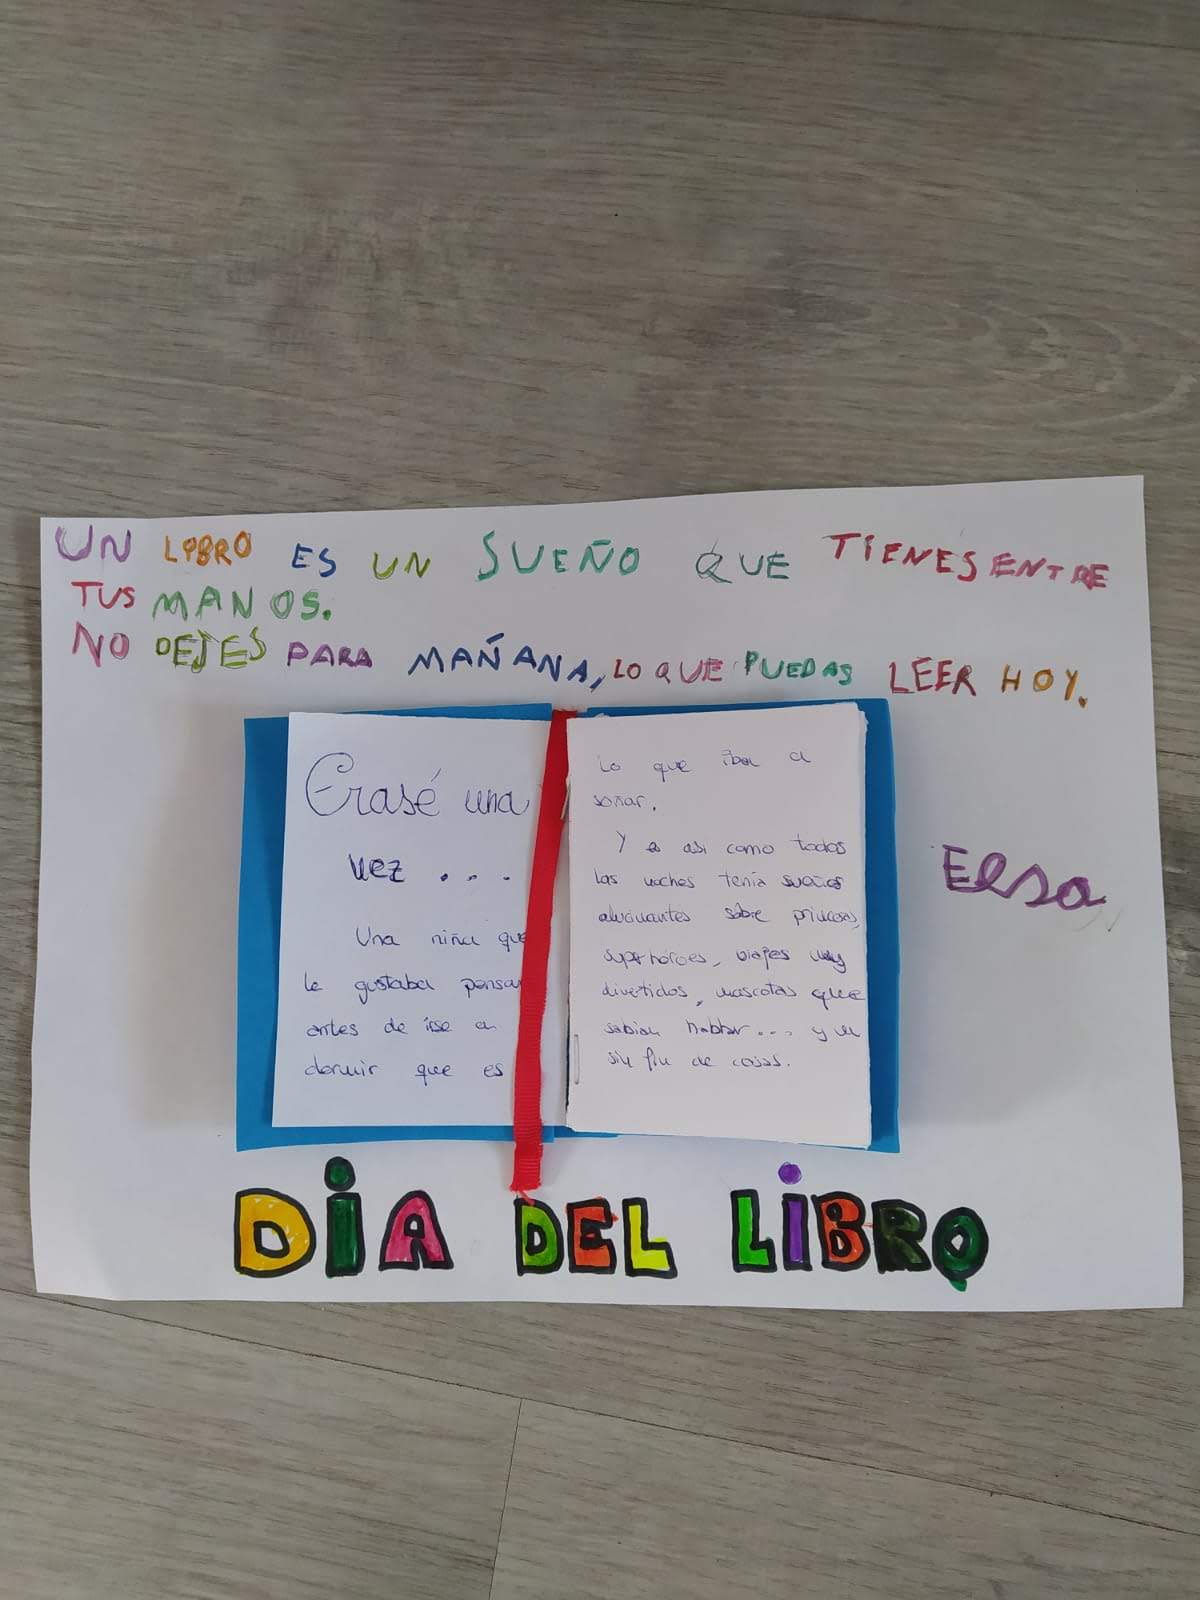 UN LIBRO ES UN SUEÑO QUE TIENES ENTRE
TUS MANOS.
NO DEJES PARA MAÑANA, LO QUE PUEDAS LEER HOY.
Erasé una
vez ...
Una niña que
le gustaba pensar
antes de irse a
dormir que es
lo que iba a
soñar.
Y es asi como todos
las noches tenía sueños
alucinantes sobre princesas,
superhéroes, viajes muy
divertidos, mascotas que
sabían hablar... y un
sin fin de cosas.
Elsa
DiA DEL LiBRO